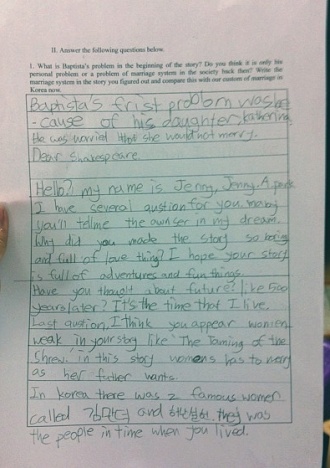 II. Answer the following questions below.
1. What is Baptista's problem in the beginning of the story? Do you think it is only his
personal problem or a problem of marriage system in the society back then? Write the
marriage system in the story you figured out and compare this with our custom of marriage in
Korea now.
Baptista's frist problom was be
-cause of his daughter, kathering.
He was worried that she would not merry.
Dear Shakespeare
Hello? my name is Jenny, Jenny. A. park
I have several qustion for you. maby
you'll tellme the ownser in my dream.
Why did you made the story so boring
and full of love thing? I hope your story
is full of adventures and fun things.
Have you thought about future? like 500
years later? It's the time that I live.
Last qustion, I think you appear women
weak in your story like The Taming of the
Shrew. in this story womens has to merry
as her futher wants.
In korea there was 2 famous women
called and they was
the people in time when you lived.